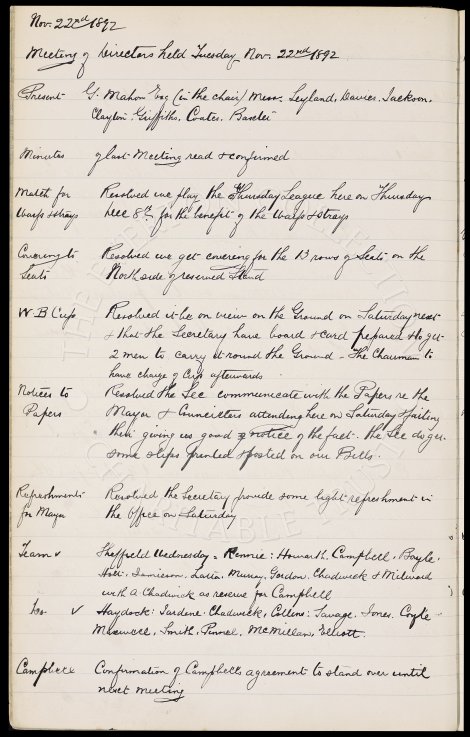 Nov. 22nd 1892
Meeting of Directors held Tuesday Nov. 22nd 1892
Present G. Mahon Esq (in the chair) Messrs. Leyland, Davies, Jackson,
Clayton, Griffiths, Coates, Baxter
Minutes of last Meeting read & confirmed
Match for Resolved we play the Thursday League here on Thursday
Waifs & strays Dec 8th for the benefit of the Waifs & strays
Covering to Resolved we get covering for the 13 rows of Seats on the
Seats North side of reserved Stand
W.B Cup Resolved it be on view on the Ground on Saturday next
& that the Secretary have board & card prepared & to get
2 men to carry it round the Ground - The Chairman to
have charge of Cup afterwards
Notices to Resolved the Sec communicate with the Papers re the
Papers Mayor & Councillors attending here on Saturday & failing
their giving us good notice of the fact. the Sec do get
some slips printed & posted on our Bills.
Refreshments Resolved the Secretary provide some light refreshment in
for Mayor the Office on Saturday
Team v Sheffield Wednesday. Rennie: Howarth, Campbell, Boyle,
Holt: Jamieson, Latta, Murray, Gordon, Chadwick & Milward
with A Chadwick as reserve for Campbell
Do v Haydock: Jardine: Chadwick, Collins: Savage, Jones, Coyle
Maxwell, Smith, Pinnel, McMillan, Elliott.
Campbell Confirmation of Campbells agreement to stand over until
next meeting